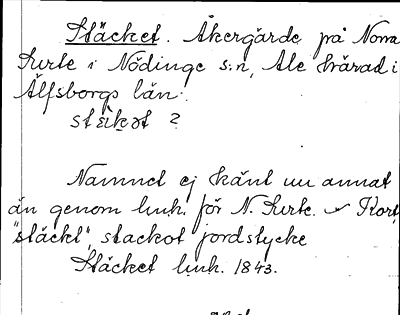 Stäcket. Åkergärde på Norra
Surte i Nödinge s:n, Ale härad i
Älfsborgs län.
?
Namnet ej känt un annat
än genom lmh. för N. Surte. Kort,
"stäckt", stackot jordstycke
Stäcket lmh. 1843.